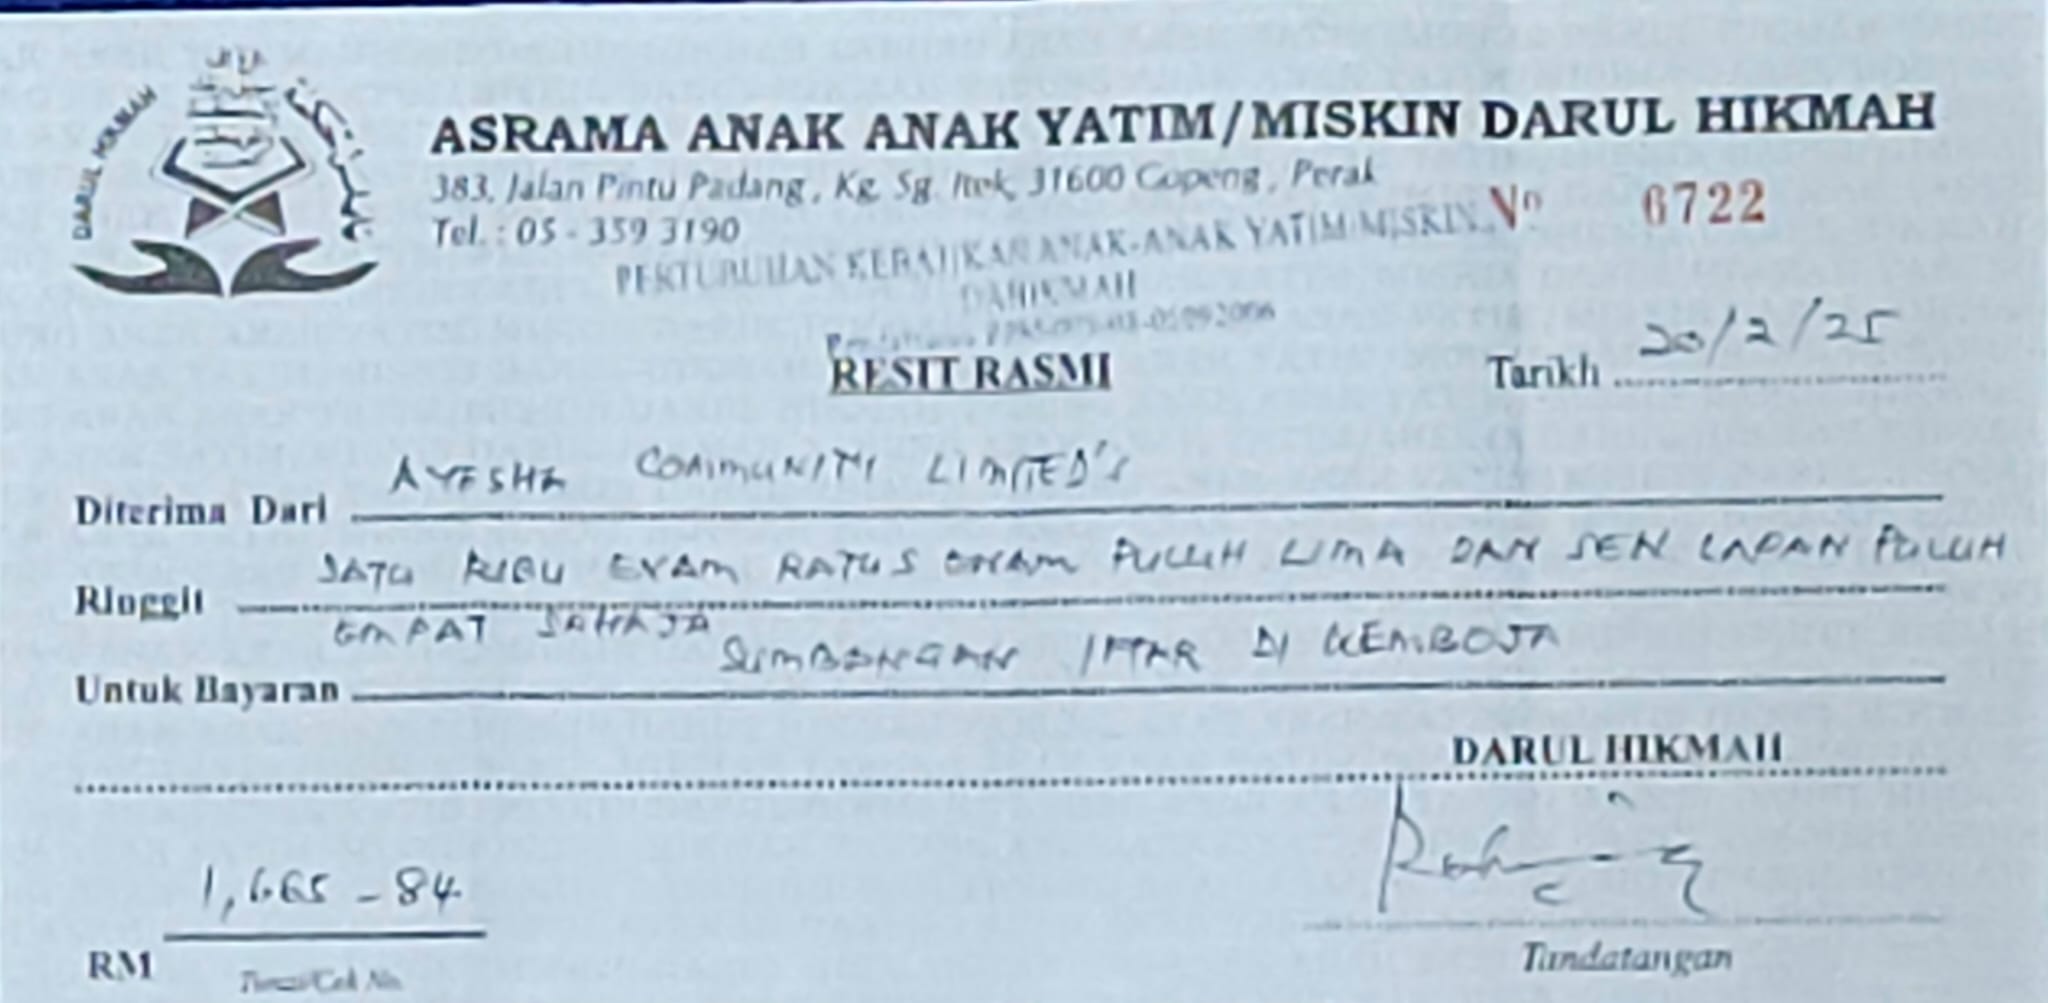 DARUL HIKMAH
ASRAMA ANAK ANAK YATIM/MISKIN DARUL HIKMAH
383, Jalan Pintu Padang, Kg. Sg. Itek, 31600 Gopeng, Perak
Tel. : 05 - 359 3190
No 6722
PERTUBUHAN KEBAJIKAN ANAK-ANAK YATIM/MISKIN
DAHIKMAH
RESIT RASMI
Tarikh 20/2/25
Diterima Dari AYESHA COMMUNITI LIMITED'S
Ringgit SATU RIBU ENAM RATUS ENAM PULUH LIMA DAN SEN LAPAN PULUH
EMPAT SAHAJA
Untuk Bayaran SUMBANGAN IFTAR DI KEMBOJA
DARUL HIKMAH
RM 1,665-84
Tunai/Cek No.
Tandatangan